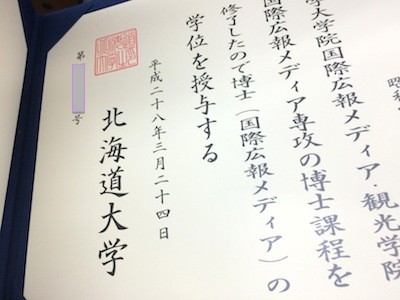 昭和
学大学院国際広報メディア・観光学院
国際広報メディア専攻の博士課程を
修了したので博士（国際広報メディア）の
学位を授与する
平成二十八年三月二十四日
北海道大学
第 号